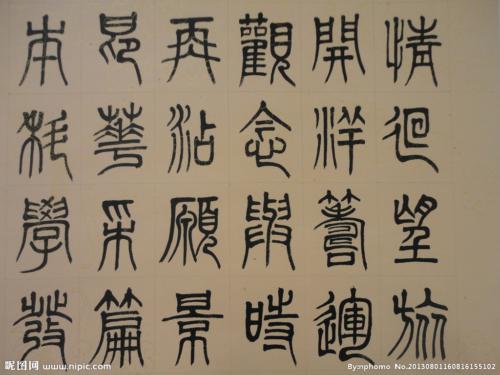 情徊望
開洋運
觀念與時
再沾願景
華采篇
本科學發
昵图网 www.nipic.com
By:nphomo No.20130801160816155102